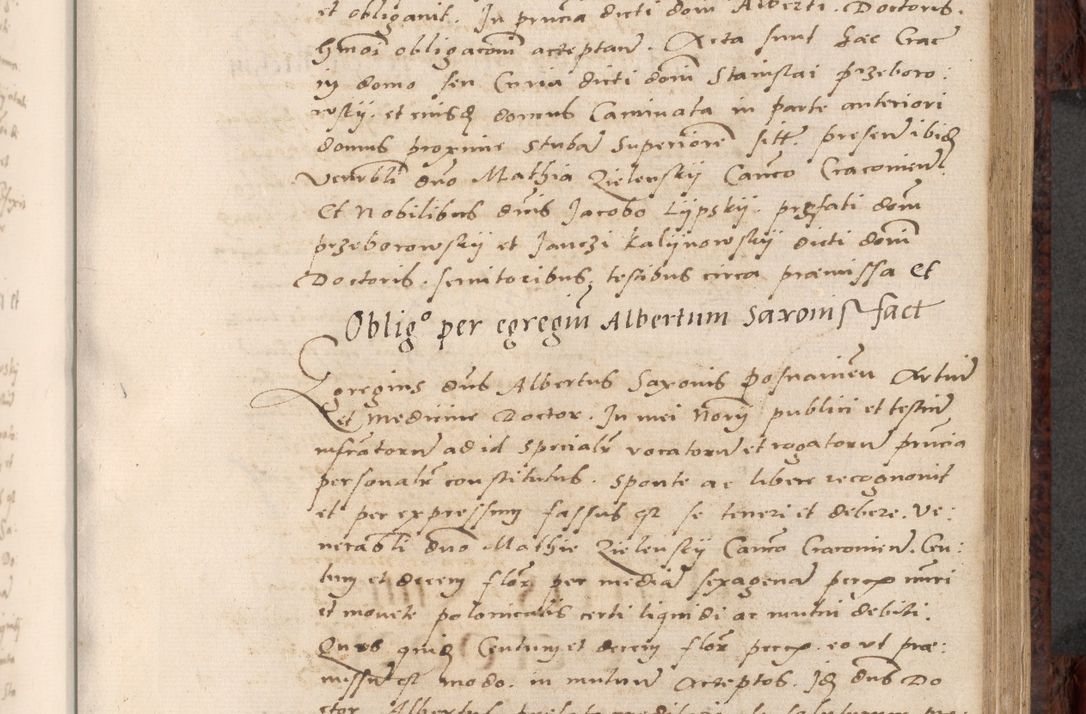 et obliganit. In pñcia dicti dom̃ Alberti. Doctoris.
hm̃oi obligacoñi acceptañ. Acta sunt hæc Crac̃
in domo seu Curia dicti dom̃i Stanislai przeboro:
wskij. et eiusdẽ domus Caminata in parte anteriori
domus proxime Stubã Superiorẽ sitt̃. preseñ ibidẽ
Venẽrbli dño Mathia Zielenskij Cañco Cracovieñ.
Et Nobilibus dñis Jacobo Lijpskij. præfati dom̃
przeborowskij et Janczi Kalijnowskij dicti dom̃i
Doctoris. seruitoribus, testibus circa præmissa Et
Oblig° per egregiũ Albertum Saxonis fact̃
Egregius dñs Albertus Saxonis posnanieñ Artiũ
et Medicine Doctor. In mei Norij publici et testiũ
infrãtorũ ad id specialr̃ vocatorũ et rogatorũ pñcia
personalr̃ constitutus. Sponte ac libere recognouit
et per expressum fassus est se teneri et debere. Ve:
nerabli dño Mathie Zielenskij Cañco Cracovieñ. Cen:
tum et decem flor̃ per mediã sexagenã pec̃ nũri
et monete polonicalis certi liquidi ac mutui debiti.
Quos quidẽ Centum et decem flor̃ pec̃. eo vt præ:
missũ est modo. in mutuũ Acceptos. Idẽ dñs Do
ctor Albertus